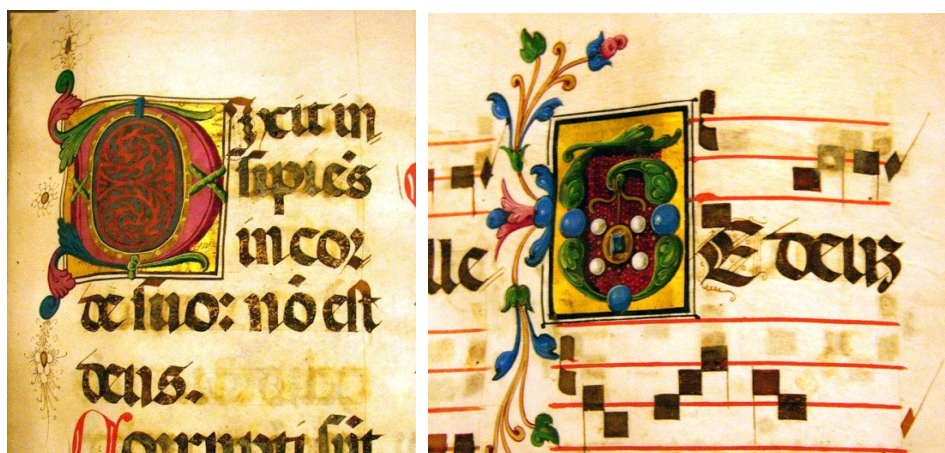 Dixit in
sipiēs
in cor
de suo: nō est
deus.
Corrupti sūt
TE deuz